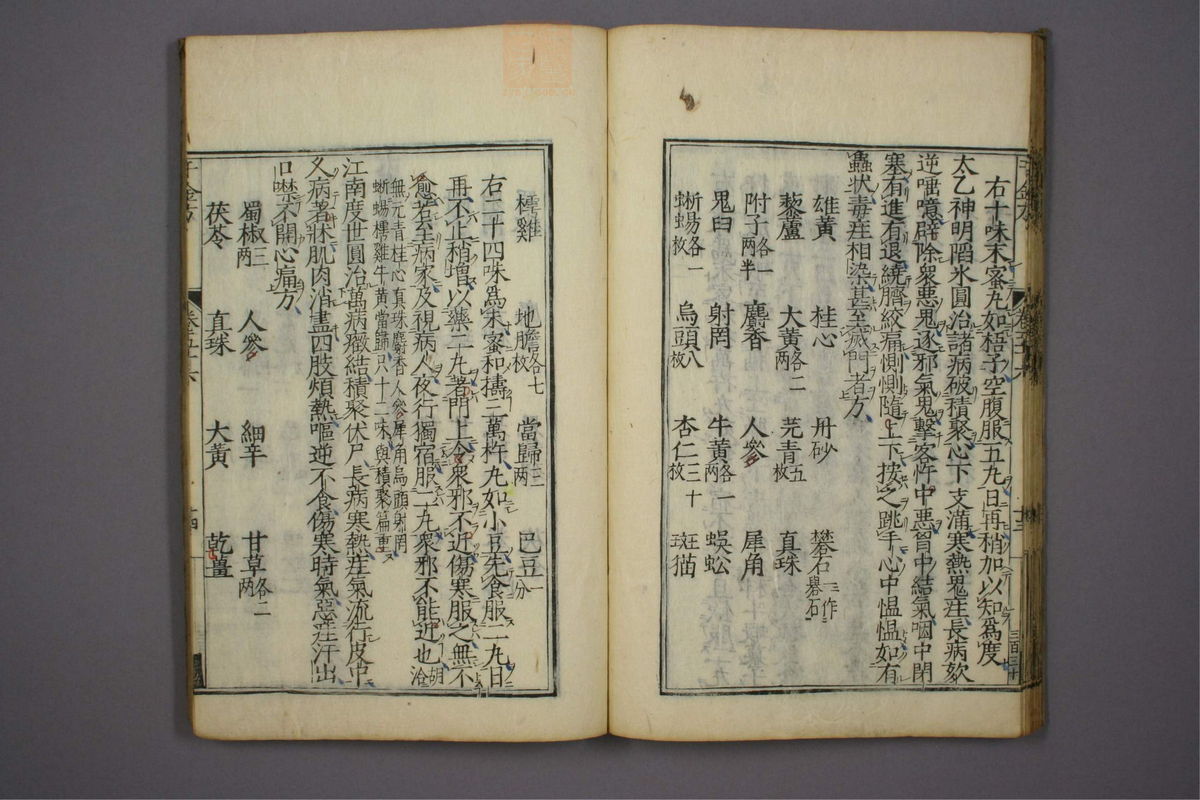 右十味末蜜丸如梧子空腹服五丸日再稍加以知爲度
太乙神明陷氷圓治諸病破積聚心下支滿寒熱鬼疰長病欬
逆唾噫辟除衆惡鬼逐邪氣鬼擊客忤中惡胷中結氣咽中閉
塞有進有退繞臍絞痛惻惻隨上下按之跳手心中愠愠如有
蟲狀毒疰相染甚至滅門者方
雄黃 桂心 丹砂 礬石一作礜石
藜蘆 大黃各二兩 芫青五枚 真珠
附子各一兩半 麝香 人參 犀角
鬼臼 射罔 牛黃各一兩 蜈蚣
蜥蜴各一枚 烏頭八枚 杏仁三十枚 斑猫
樗雞 地膽各七枚 當歸三兩 巴豆一分
右二十四味爲末蜜和擣三萬杵丸如小豆先食服二丸日
再不止稍增以藥二丸著門上令衆邪不近傷寒服之無不
愈若至病家及視病人夜行獨宿服二丸衆邪不能近也胡洽
無芫青桂心真珠麝香人參犀角烏頭射罔
蜥蜴樗雞牛黃當歸只十二味與積聚篇重
江南度世圓治萬病癥結積聚伏尸長病寒熱疰氣流行皮中
久病著牀肌肉消盡四肢煩熱嘔逆不食傷寒時氣惡疰汗出
口噤不開心痛方
蜀椒三兩 人參 細辛 甘草各二兩
茯苓 真珠 大黃 乾薑